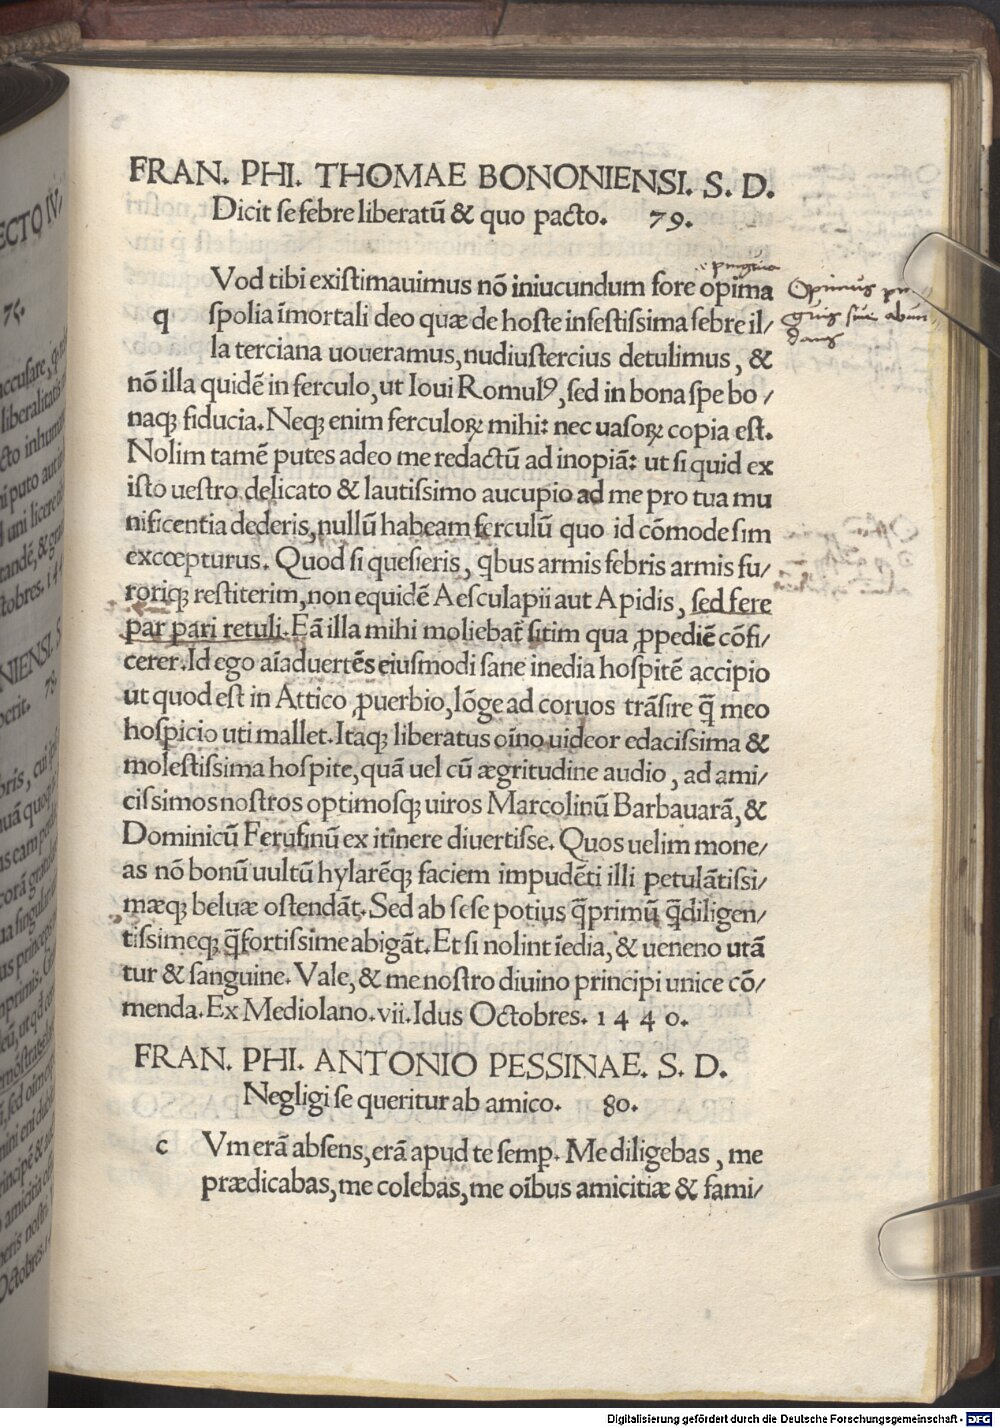 FRAN. PHI. THOMAE BONONIENSI. S. D.
Dicit se febre liberatū & quo pacto. 79.
Vod tibi existimauimus nō iniucundum fore opima
q spolia īmortali deo quæ de hoste infestissima febre il/
la terciana uoueramus, nudiustercius detulimus, &
nō illa quidē in ferculo, ut Ioui Romulꝰ, sed in bona spe bo/
naqꝫ fiducia. Neqꝫ enim ferculoꝝ mihi: nec uasoꝝ copia est.
Nolim tamē putes adeo me redactū ad inopiā: ut si quid ex
isto uestro delicato & lautissimo aucupio ad me pro tua mu
nificentia dederis, nullū habeam ferculū quo id cōmode sim
excœpturus. Quod si quesieris, qbus armis febris armis fu/
roriqꝫ restiterim, non equidē Aesculapii aut Apidis, sed fere
par pari retuli. Eā illa mihi moliebat̄ sitim qua ꝓpediē cōfi/
cerer. Id ego aīaduertēs eiusmodi sane inedia hospitē accipio
ut quod est in Attico ꝓuerbio, lōge ad coruos trāsire q̄ meo
hospicio uti mallet. Itaqꝫ liberatus oīno uideor edacissima &
molestissima hospite, quā uel cū ægritudine audio, ad ami/
cissimos nostros optimosqꝫ uiros Marcolinū Barbauarā, &
Dominicū Ferufinū ex itinere diuertisse. Quos uelim mone/
as nō bonū uultū hylarēqꝫ faciem impudēti illi petulātissi/
mæqꝫ beluæ ostendāt. Sed ab sese potius q̄primū q̄diligen/
tissimeqꝫ q̄fortissime abigāt. Et si nolint īedia, & ueneno utā
tur & sanguine. Vale, & me nostro diuino principi unice cō/
menda. Ex Mediolano. vii. Idus Octobres. 1440.
FRAN. PHI. ANTONIO PESSINAE. S. D.
Negligi se queritur ab amico. 80.
c Vm erā absens, erā apud te semꝑ. Me diligebas, me
prædicabas, me colebas, me oībus amicitiæ & fami/
Opimus
guis siue abun
dans
Digitalisierung gefördert durch die Deutsche Forschungsgemeinschaft - DFG